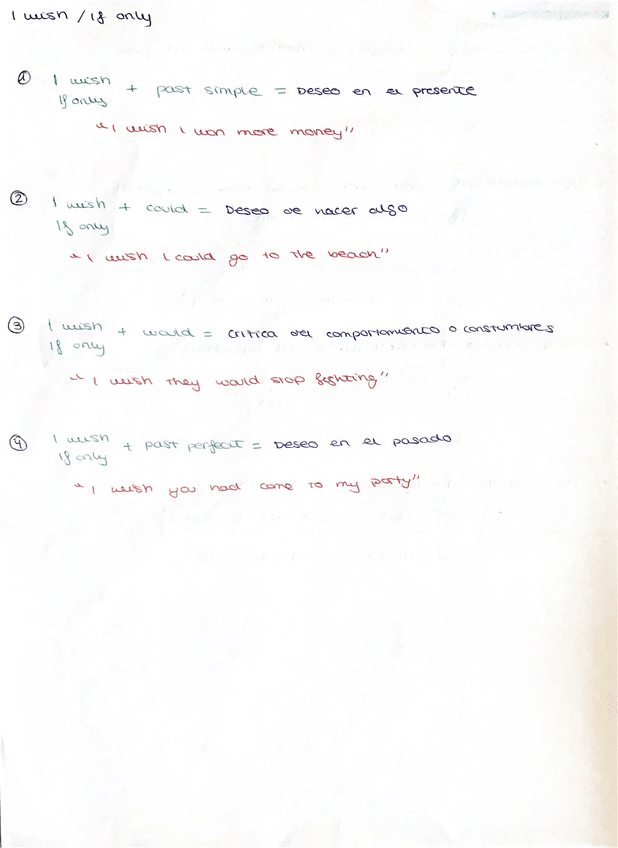 I wish / If only
① I wish
If only + past simple = Deseo en el presente
"I wish I won more money"
② I wish + could = Deseo de hacer algo
If only
"I wish I could go to the beach"
③ I wish + would = crítica del comportamiento o constumbres
If only
"I wish they would stop fighting"
④ I wish + past perfect = Deseo en el pasado
If only
"I wish you had come to my party"